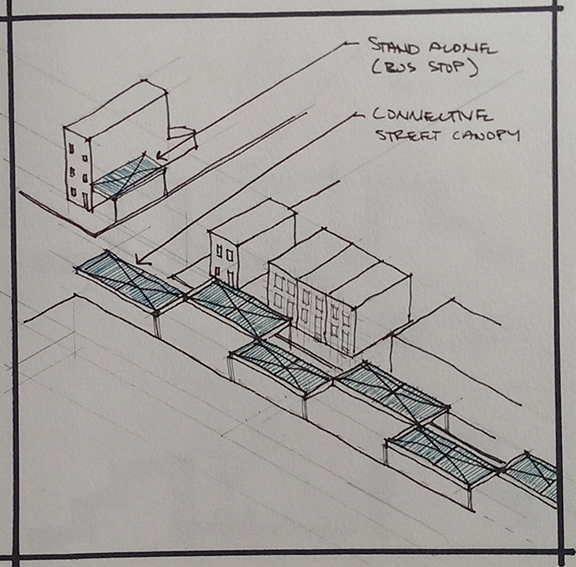 STAND ALONE
(BUS STOP)
CONNECTIVE
STREET CANOPY